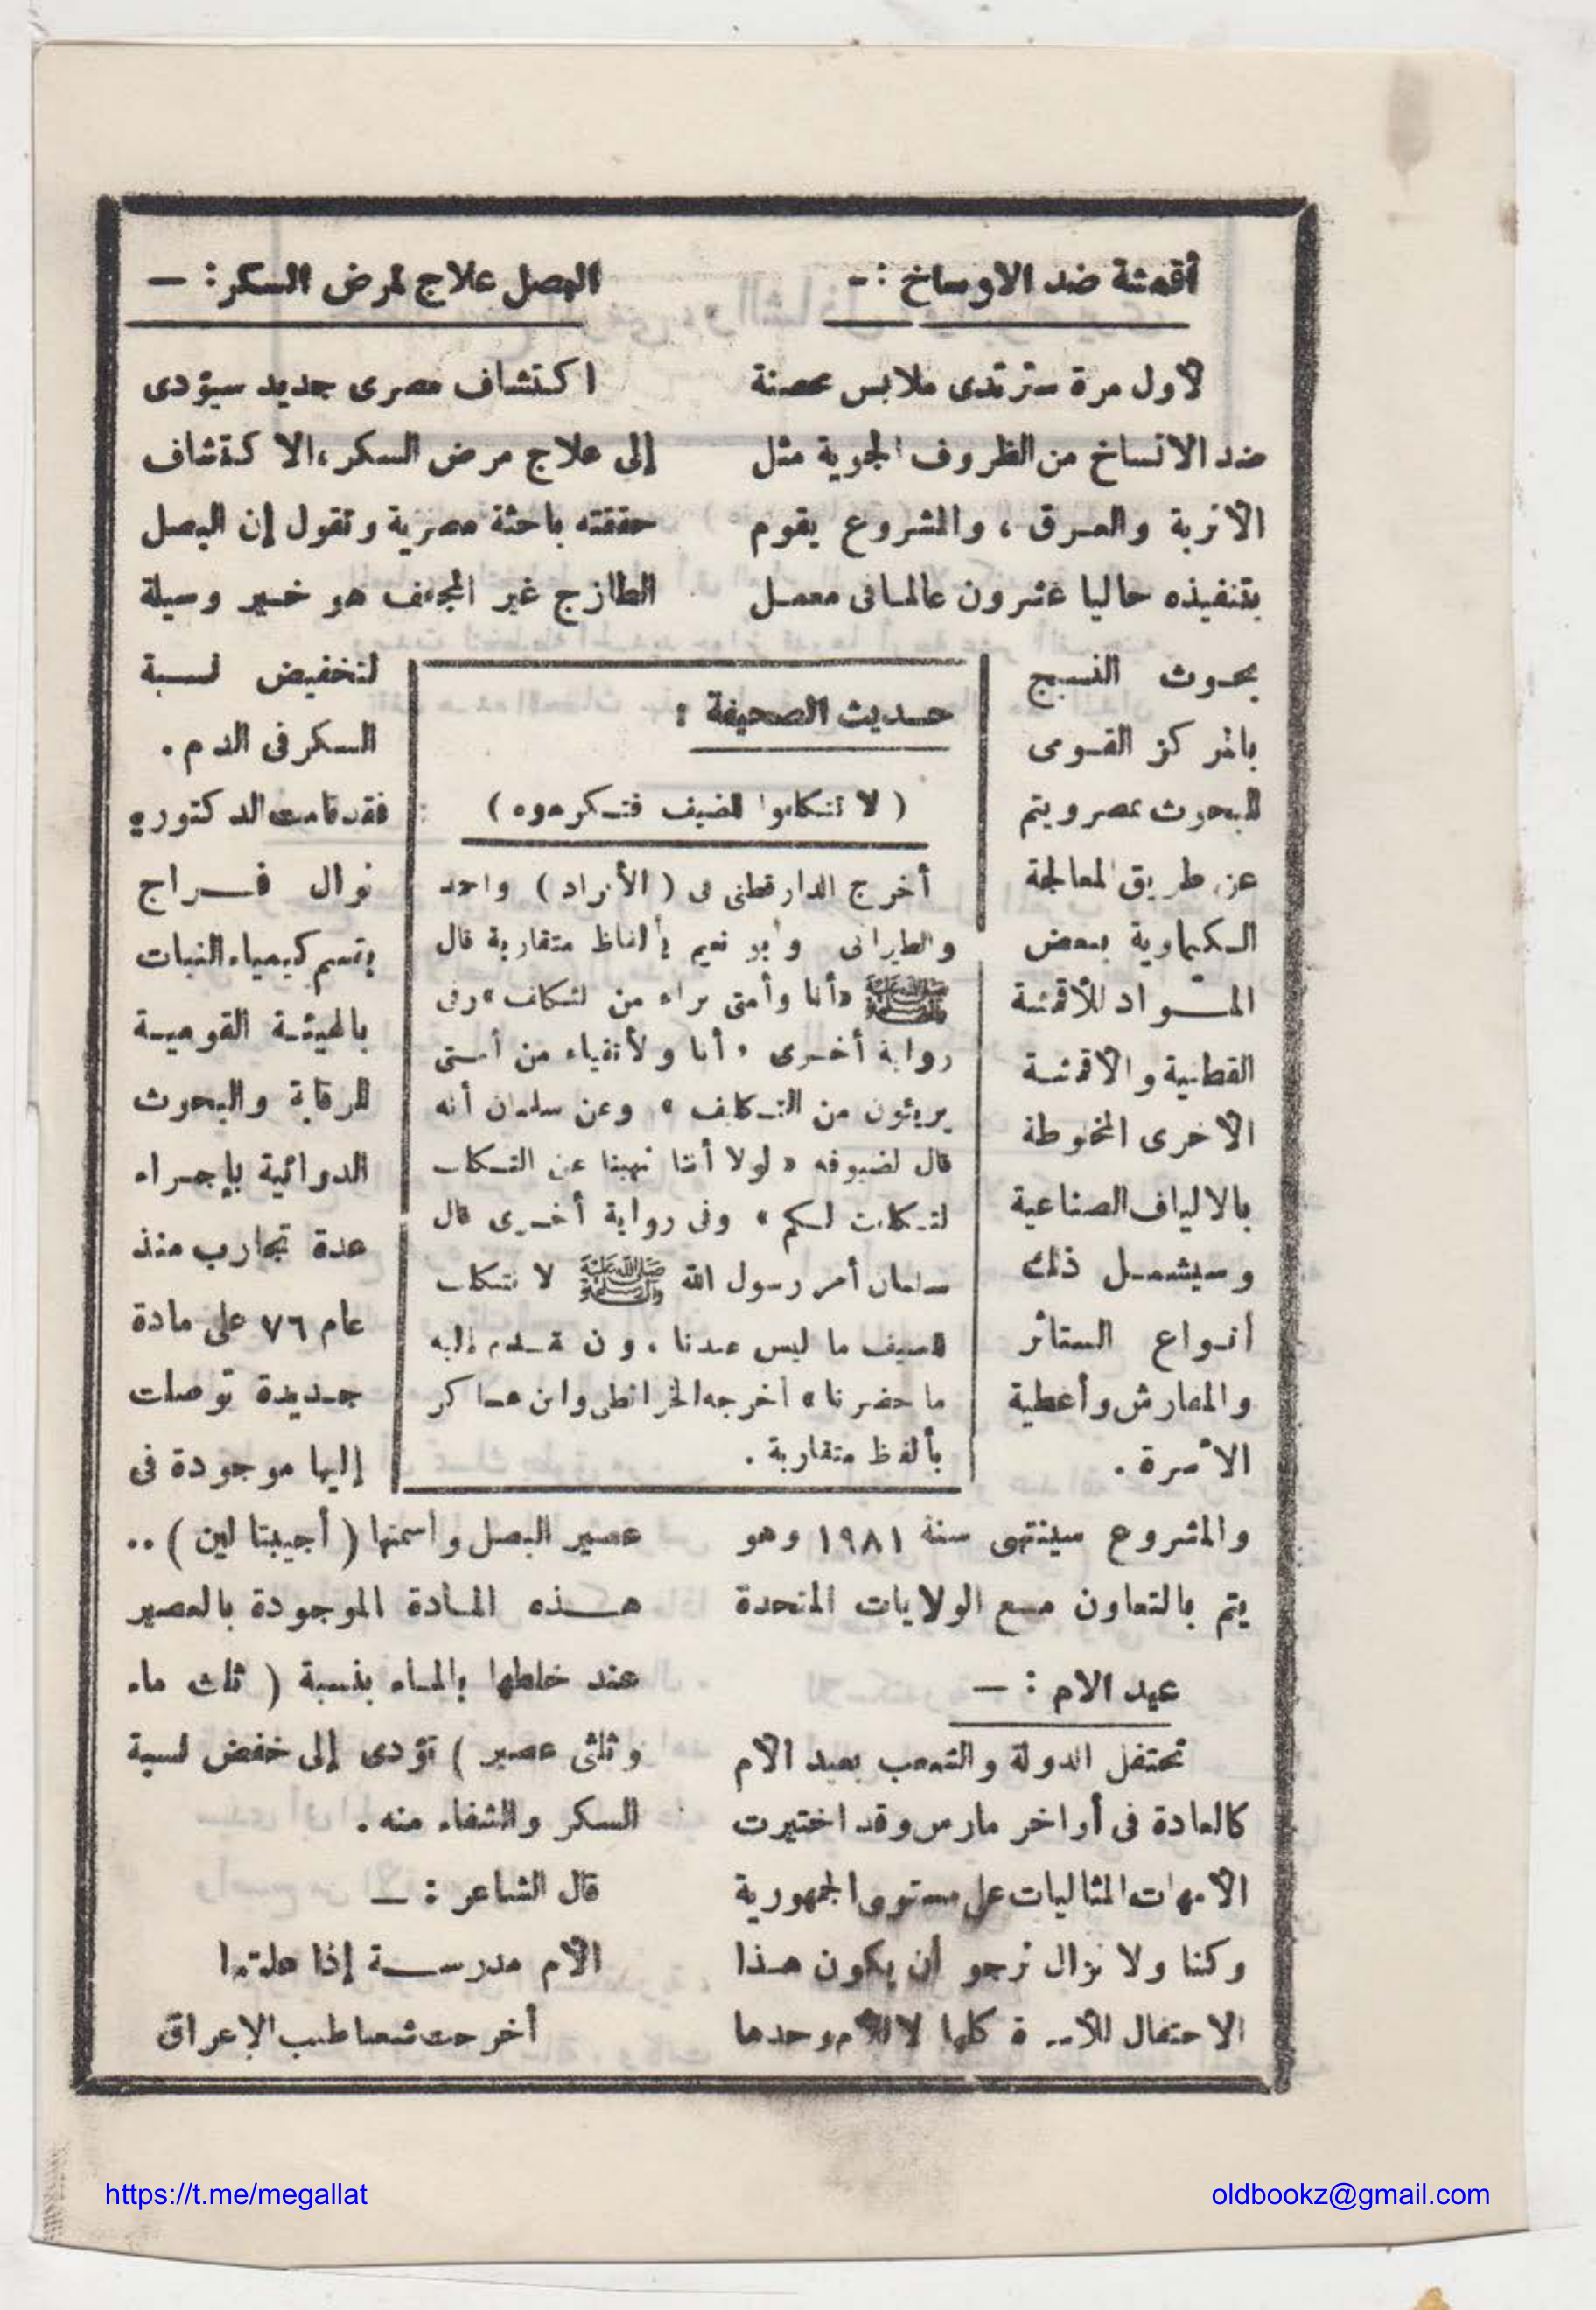 أقمشة ضد الاوساخ :-
لأول مرة سترتدى ملابس محصنة
ضد الاتساخ من الظروف الجوية مثل
الأتربة والعرق ، والمشروع يقوم
بتنفيذه حاليا عشرون عالما فى معمل
بحوث النسيج
بالمركز القومى
للبحوث بمصر ويتم
عن طريق المعالجة
الكيماوية ببعض
المواد للأقمشة
القطنية والأقمشة
الأخرى المخلوطة
بالالياف الصناعية
وسيشمل ذلك
أنواع الستائر
والمفارش وأغطية
الأسرة .
والمشروع سينتهى سنة ١٩٨١ وهو
يتم بالتعاون مع الولايات المتحدة
عيد الام : —
تحتفل الدولة والشعب بعيد الأم
كالعادة فى أواخر مارس وقد اختيرت
الأمهات المثاليات على مستوى الجمهورية
وكنا ولا نزال نرجو أن يكون هذا
الاحتفال كلها لا للأم وحدها
حديث الصحيفة :
( لا تتكلفوا للضيف فتكرهوه )
أخرج الدارقطنى فى ( الأفراد ) واحمد
والطبرانى وأبو نعيم بألفاظ متقاربة قال
ﷺ «أنا وأمتى براء من التكلف» وفى
رواية أخرى « أنا والأتقياء من أمتى
بريئون من التكلف » وعن سلمان أنه
قال لضيوفه « لولا أننا نهينا عن التكلف
لتكلفت لكم » وفى رواية أخرى قال
سلمان أمر رسول الله ﷺ لا نتكلف
للضيف ما ليس عندنا ، ون قدم إليه
ما حضرنا » أخرجه الخرائطى وابن عساكر
بألفظ متقاربة .
البصل علاج لمرض السكر : —
اكتشاف مصرى جديد سيؤدى
إلى علاج مرض السكر ، الاكتشاف
حققته باحثة مصرية وتقول إن البصل
الطازج غير المجفف هو خير وسيلة
لتخفيض نسبة
السكر فى الدم .
فقد قامت الدكتوره
نوال فراج
بقسم كيمياء النبات
بالهيئة القومية
للرقابة والبحوث
الدوائية بإجراء
عدة تجارب منذ
عام ٧٦ على مادة
جديدة توصلت
إليها موجودة فى
عصير البصل واسمتها ( أجيبتا لين ) ..
هذه المادة الموجودة بالعصير
عند خلطها بالماء بنسبة ( ثلث ماء
وثلثى عصير ) تؤدى إلى خفض نسبة
السكر والشفاء منه .
قال الشاعر : —
الأم مدرسة إذا
أخرجت شعبا طيب الإعراق
https://t.me/megallat
oldbookz@gmail.com